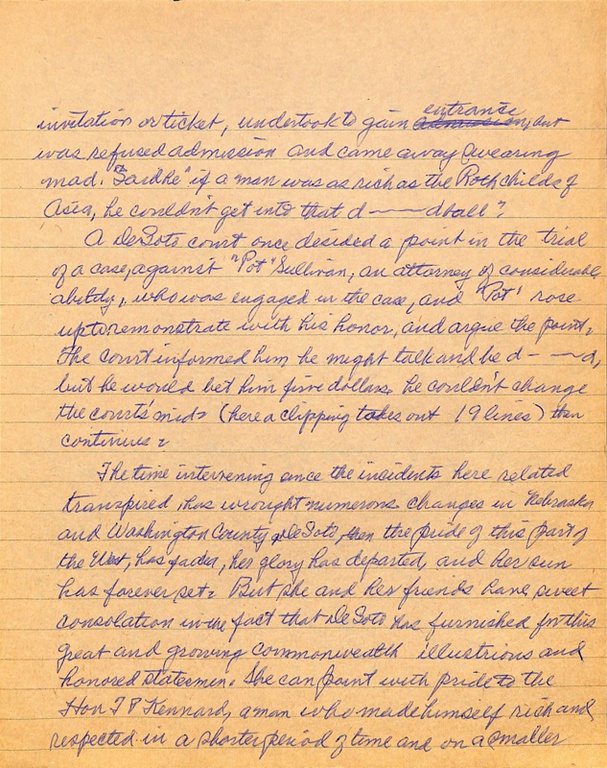 invitation or ticket, undertook to gain admission, entrance but
was refused admission and came away swearing
mad. "Said he" if a man was as rich as the Rothchilds of
Asia, he couldn't get into that d——dball"?
A DeSoto court once decided a point in the trial
of a case, against "Pot" Sullivan, an attorney of considerable
ability, who was engaged in the case, and "Pot" rose
up to remonstrate with his honor, and argue the point.
The court informed him he might talk and be d-—d,
but he would bet him five dollars he couldn't change
the courts' mid. (here a clipping takes out 19 lines) then
continues:
The time intervening since the incidents here related
transpired, has wrought numerous changes in Nebraska
and Washington County & DeSoto, then the pride of this part of
the West, has faded, her glory has departed, and her sun
has forever set. But she and her friends have sweet
consolation in the fact that DeSoto has furnished for this
great and growing Commonwealth illustrious and
honored statesmen. She can point with pride to the
Hon T P Kennard, a man who made himself rich and
respected in a shorter period of time and on a smaller